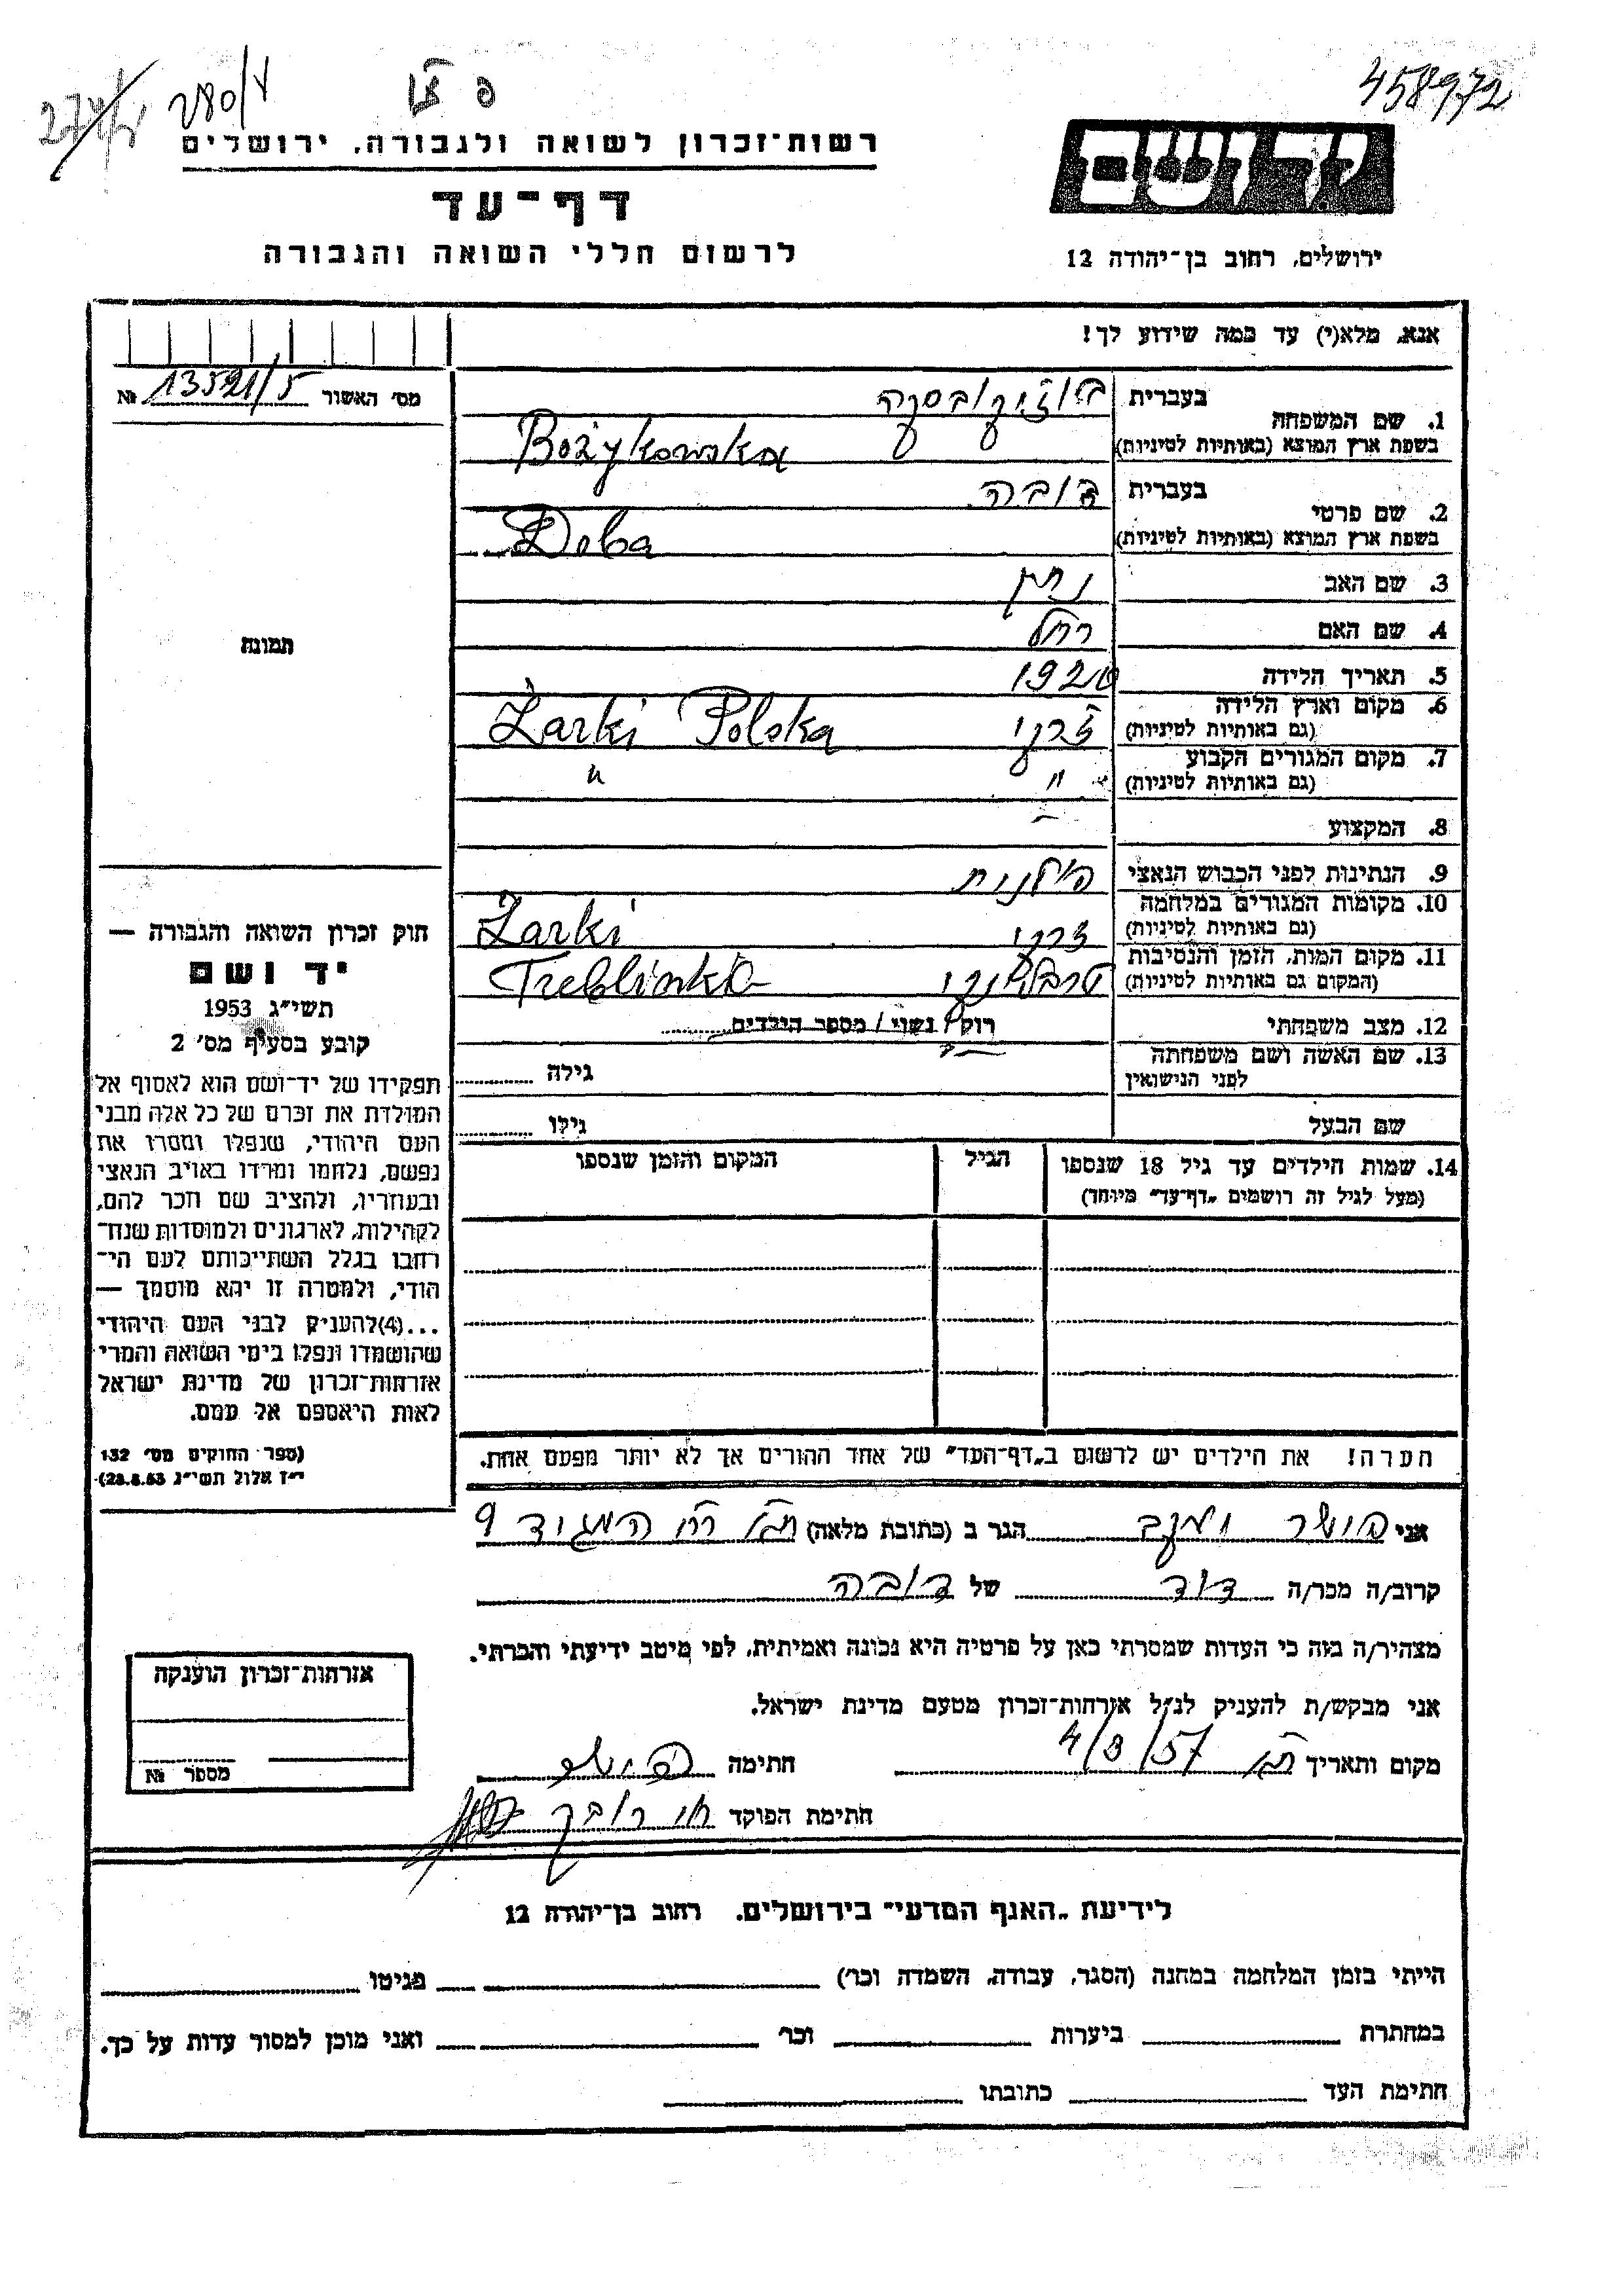 458972
פ צו
280/4
274/4
רשות־זכרון לשואה ולגבורה, ירושלים
דף־עד
לרשום חללי השואה והגבורה
יד ושם
ירושלים, רחוב בן־יהודה 12
אנא, מלא(י) עד כמה שידוע לך!
מס׳ האשור 13521/5 №
1. שם המשפחה
בעברית בוז׳יקובסקה
בשפת ארץ המוצא (באותיות לטיניות) Bożykowska
2. שם פרטי
בעברית דובה
בשפת ארץ המוצא (באותיות לטיניות) Doba
3. שם האב נתן
4. שם האם רחל
5. תאריך הלידה 1920
6. מקום וארץ הלידה ז׳רקי Żarki Polska
(גם באותיות לטיניות)
7. מקום המגורים הקבוע " "
(גם באותיות לטיניות)
8. המקצוע –
9. הנתינות לפני הכבוש הנאצי פולנית
10. מקומות המגורים במלחמה ז׳רקי Żarki
(גם באותיות לטיניות)
11. מקום המות, הזמן והנסיבות טרבלינקי Treblinka
(המקום גם באותיות לטיניות)
12. מצב משפחתי רוק/ נשוי / מספר הילדים
13. שם האשה ושם משפחתה
לפני הנישואין גילה
שם הבעל גילו
14. שמות הילדים עד גיל 18 שנספו הגיל המקום והזמן שנספו
(מעל לגיל זה רושמים „דף־עד״ מיוחד)
הערה! את הילדים יש לרשום ב„דף־העד״ של אחד ההורים אך לא יותר מפעם אחת.
תמונה
חוק זכרון השואה והגבורה —
יד ושם
תשי״ג 1953
קובע בסעיף מס׳ 2
תפקידו של יד־ושם הוא לאסוף אל
המולדת את זכרם של כל אלה מבני
העם היהודי, שנפלו ומסרו את
נפשם, נלחמו ומרדו באויב הנאצי
ובעוזריו, ולהציב שם וזכר להם,
לקהילות, לארגונים ולמוסדות שנח־
רבו בגלל השתייכותם לעם הי־
הודי, ולמטרה זו יהא מוסמך —
...(4)להעניק לבני העם היהודי
שהושמדו ונפלו בימי השואה והמרי
אזרחות־זכרון של מדינת ישראל
לאות היאספם אל עמם.
(ספר החוקים מס׳ 132
י״ז אלול תשי״ג 28.8.53)
אני יעקב הגר ב (כתובת מלאה) ת״א רח׳ המגיד 9
קרוב/ה מכר/ה דוד של דובה
מצהיר/ה בזה כי העדות שמסרתי כאן על פרטיה היא נכונה ואמיתית, לפי מיטב ידיעתי והכרתי.
אני מבקש/ת להעניק לנ״ל אזרחות־זכרון מטעם מדינת ישראל.
מקום ותאריך ת״א 4/3/57 חתימה
חתימת הפוקד
אזרחות־זכרון הוענקה
מספר №
לידיעת „האגף המדעי״ בירושלים, רחוב בן־יהודה 12
הייתי בזמן המלחמה במחנה (הסגר, עבודה, השמדה וכר׳) בגיטו
במחתרת ביערות וכר׳ ואני מוכן למסור עדות על כך.
חתימת העד כתובתו